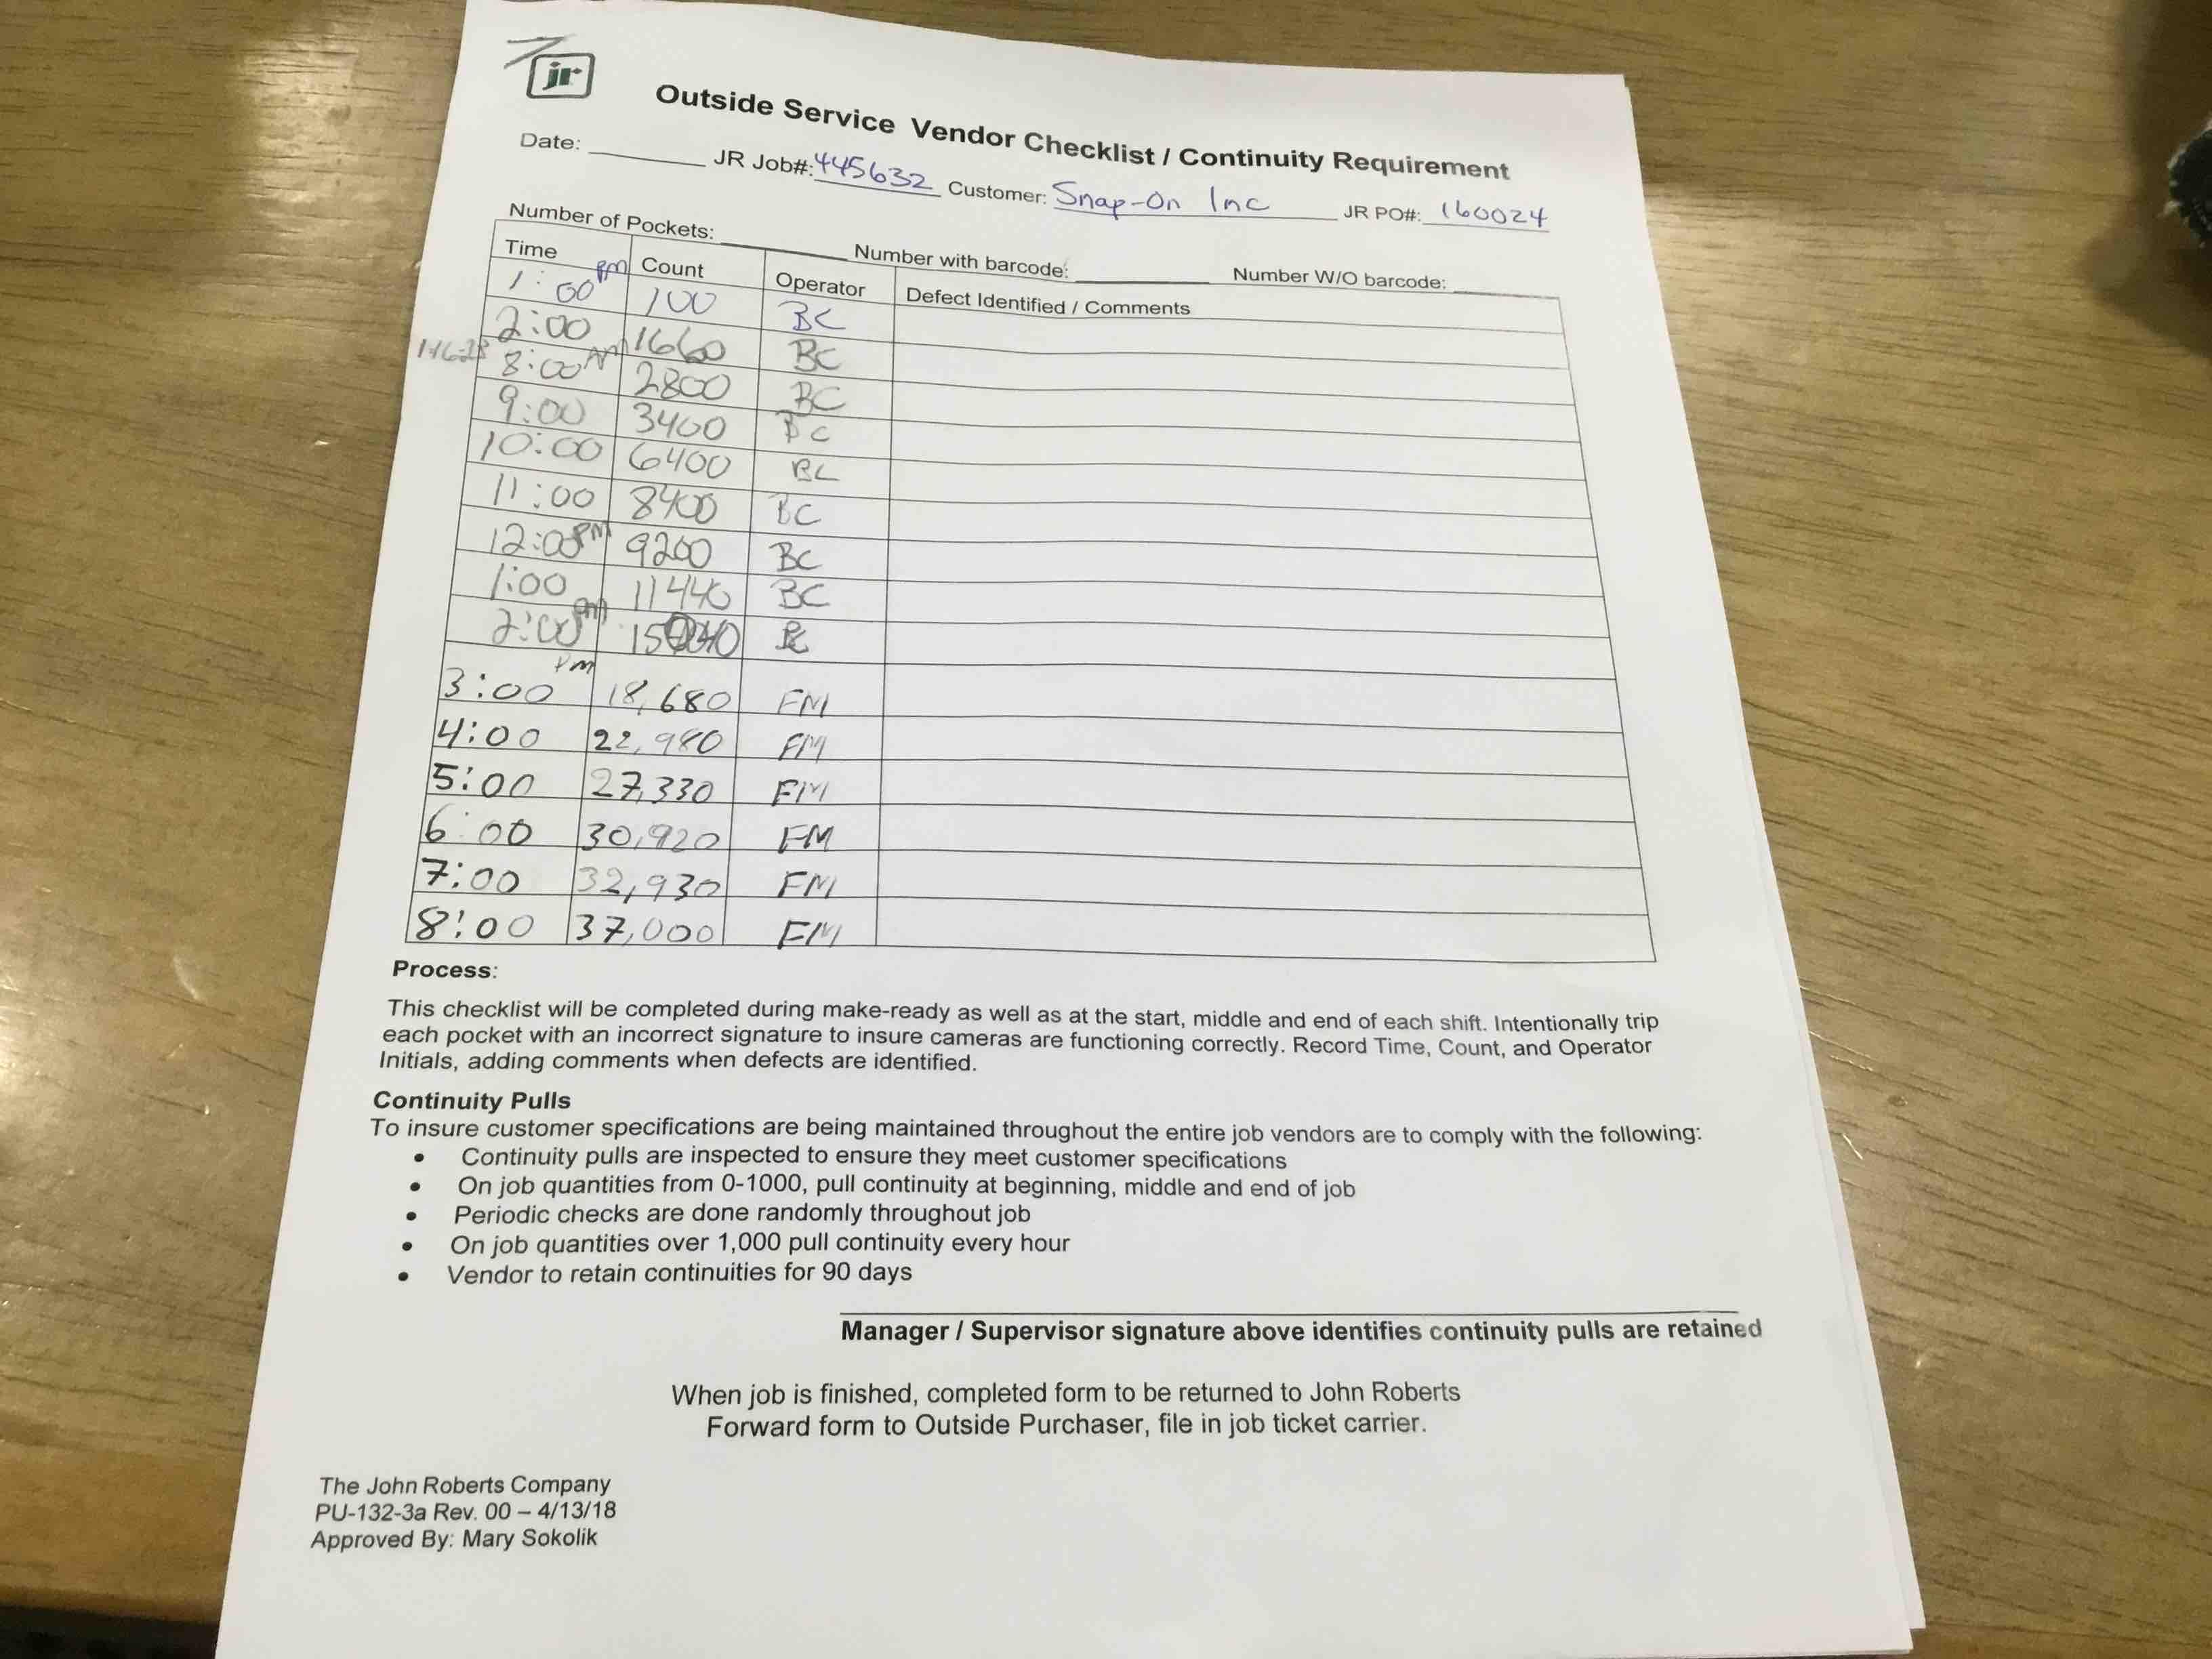 jr
Outside Service Vendor Checklist / Continuity Requirement
Date: JR Job#: 445632 Customer: Snap-On Inc JR PO#: 160024
Number of Pockets: Number with barcode: Number W/O barcode:
Time Count Operator Defect Identified / Comments
1:00 PM 100 BC
2:00 1660 BC
8:00 AM 2800 BC
9:00 3400 BC
10:00 6400 BC
11:00 8400 BC
12:00 PM 9200 BC
1:00 11440 BC
2:00 PM BC
3:00 PM 18,680 FM
4:00 22,980 FM
5:00 27,330 FM
6:00 30,920 FM
7:00 32,930 FM
8:00 37,000 FM
Process:
This checklist will be completed during make-ready as well as at the start, middle and end of each shift. Intentionally trip
each pocket with an incorrect signature to insure cameras are functioning correctly. Record Time, Count, and Operator
Initials, adding comments when defects are identified.
Continuity Pulls
To insure customer specifications are being maintained throughout the entire job vendors are to comply with the following:
• Continuity pulls are inspected to ensure they meet customer specifications
• On job quantities from 0-1000, pull continuity at beginning, middle and end of job
• Periodic checks are done randomly throughout job
• On job quantities over 1,000 pull continuity every hour
• Vendor to retain continuities for 90 days
Manager / Supervisor signature above identifies continuity pulls are retained
When job is finished, completed form to be returned to John Roberts
Forward form to Outside Purchaser, file in job ticket carrier.
The John Roberts Company
PU-132-3a Rev. 00 – 4/13/18
Approved By: Mary Sokolik